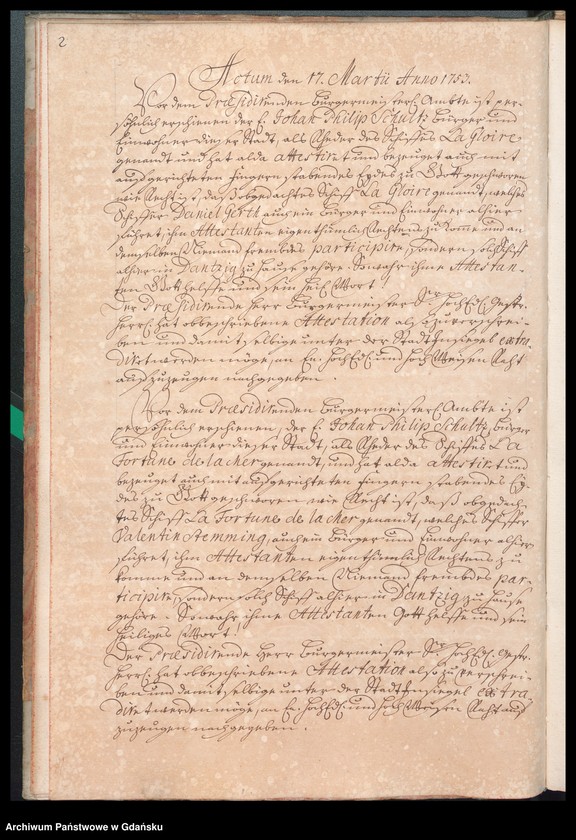 2
Actum den 17. Martii Anno 1753.
Vor dem Præsidirenden Bürgermeisterl. Ambte ist per-
söhnlich erschienen der H. Johan Philip Schultz Bürger und
Einwohner dieser Stadt, als Rheder des Schiffes La Gloire
genandt und hat alda attestiret und bezeuget auch mit
ausgerichteten Fingern stabendes Eydes zu Gott geschworen
wie Recht ist, daß obgedachtes Schiff La Gloire genandt, welches
Schiffer Daniel Gerth auch ein Bürger und Einwohner alhier
führet, ihm Attestanten eigenthümlich Rechtens zu komme und an
demselben Niemand frembdes participire, sondern solch Schiff
alhier in Dantzig zu Hause gehöre. So wahr ihme Attestan-
ten Gott helffe und sein heil. Wort!
Der Præsidirende Herr Bürgermeister Sr. HochEdl. Gestr.
Herrl. hat obbeschriebene Attestation also zu verschrei-
ben und damit selbige unter der Stadt Insiegel extra-
diret werden möge, an En. HochEdl. und Hoch Weisen Raht
auszuzeugen nachgegeben.
Vor dem Præsidirenden Bürgermeisterl. Ambte ist
persöhnlich erschienen, der H. Johan Philip Schultz, Bürger
und Einwohner dieser Stadt, als Rheder des Schiffes La
Fortune de la cher genandt, und hat alda attestiret und
bezeuget auch mit ausgerichteten Fingern stabendes Ey-
des zu Gott geschworen, wie Recht ist, daß obgedach-
tes Schiff La Fortune de la cher genandt, welches Schiffer
Valentin Stemming, auch ein Bürger und Einwohner alhier
führet, ihm Attestanten eigenthümlich Rechtens zu
komme und an demselben Niemand frembdes par-
ticipire, sondern solch Schiff alhier in Dantzig zu Hause
gehöre. So wahr ihme Attestanten Gott helffe und sein
heiliges Wort!
Der Præsidirende Herr Bürgermeister Sr. HochEdl. Gestr.
Herrl. hat obbeschriebene Attestation also zu verschrei-
ben und damit selbige unter der Stadt Insiegel extra
diret werden möge, an En. HochEdl. und Hoch Weisen Raht aus
zuzeugen nachgegeben.
Archiwum Państwowe w Gdańsku